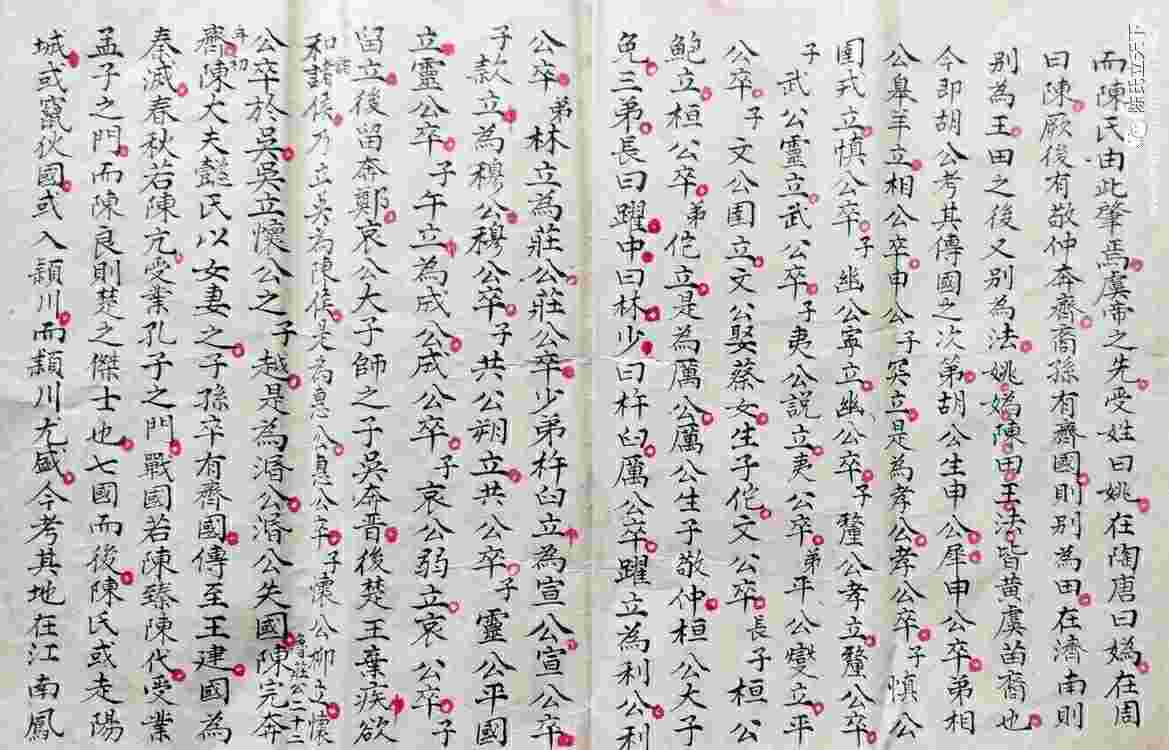 而陳氏由此肇焉虞帝之先受姓曰姚在陶唐曰媯在周
曰陳厥後有敬仲奔齊裔孫有齊國則別為田在濟南則
別為王田之後又別為法姚媯陳田王法皆黃虞苗裔也
今即胡公考其傳國之次弟胡公生申公犀申公卒弟相
公皐羊立相公卒申公子突立是為孝公孝公卒子慎公
圉戎立慎公卒子幽公寧立幽公卒子釐公孝立釐公卒
子武公靈立武公卒子夷公說立夷公卒弟平公爕立平
公卒子文公圉立文公娶蔡女生子佗文公卒長子桓公
鮑立桓公卒弟佗立是為厲公厲公生子敬仲桓公大子
免三弟長曰躍中曰林少曰杵臼厲公卒躍立為利公利
公卒弟林立為莊公莊公卒少弟杵臼立為宣公宣公卒
子款立為穆公穆公卒子共公朔立共公卒子靈公平國
立靈公卒子午立為成公成公卒子哀公弱立哀公卒子
留立後留奔鄭哀公大子師之子吳奔晉後楚王棄疾欲
和諸侯乃立吳為陳侯是為惠公惠公卒子懷公柳立懷
公卒於吳吳立懷公之子越是為湣公湣公失國陳完奔
齊陳大夫懿氏以女妻之子孫卒有齊國傳至王建國為
秦滅春秋若陳亢受業孔子之門戰國若陳臻陳代受業
孟子之門而陳良則楚之傑士也七國而後陳氏或走陽
城或竄伙國或入潁川而潁川尢盛今考其地在江南鳳